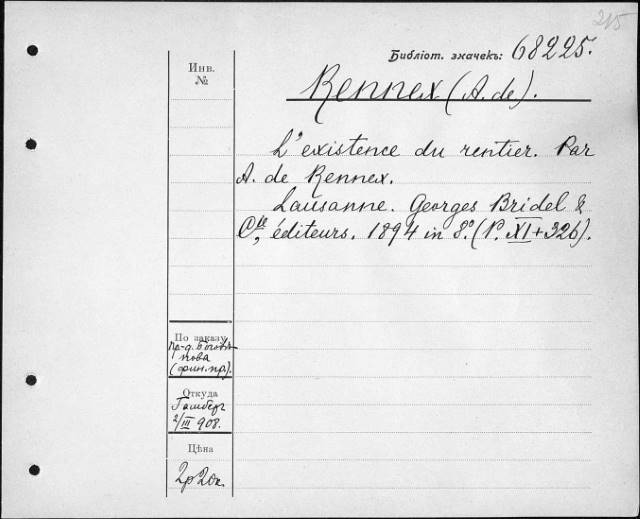 215
Библіот. значекъ: 68225.
Инв.
№
Rennex (A. de).
L'existence du rentier. Par
A. de Rennex.
Lausanne. Georges Bridel &
Cie, éditeurs. 1894 in 8°. (P. XI+326).
По заказу
пр-д. Боголѣ-
пова
(фин. пр).
Откуда
Гамберг
2/III 908.
Цѣна
2р 20к.